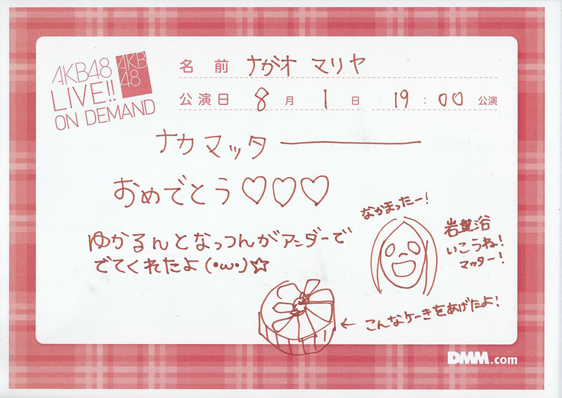 AKB48
LIVE!!
ON DEMAND
AKB
48
名 前 ながオ マリヤ
公演日 8 月 1 日 19:00 公演
ナカマッター
おめでとう♡♡♡
ゆかるんとなっつんがアンダーで
でてくれたよ(・ω・)☆
なかまったー!
岩盤浴
いこうね!
マッター!
← こんなケーキをあげたよ!
DMM.com